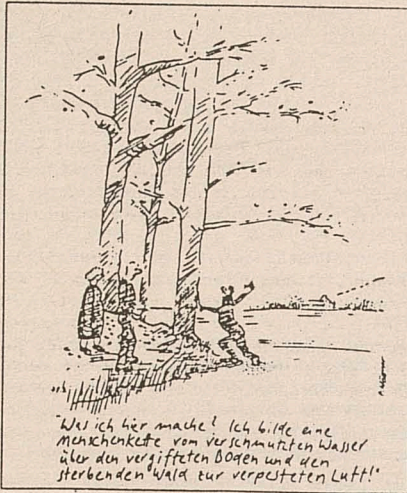 "Was ich hier mache? Ich bilde eine
Menschenkette vom verschmutzten Wasser
über den vergifteten Boden und den
sterbenden Wald zur verpesteten Luft!"